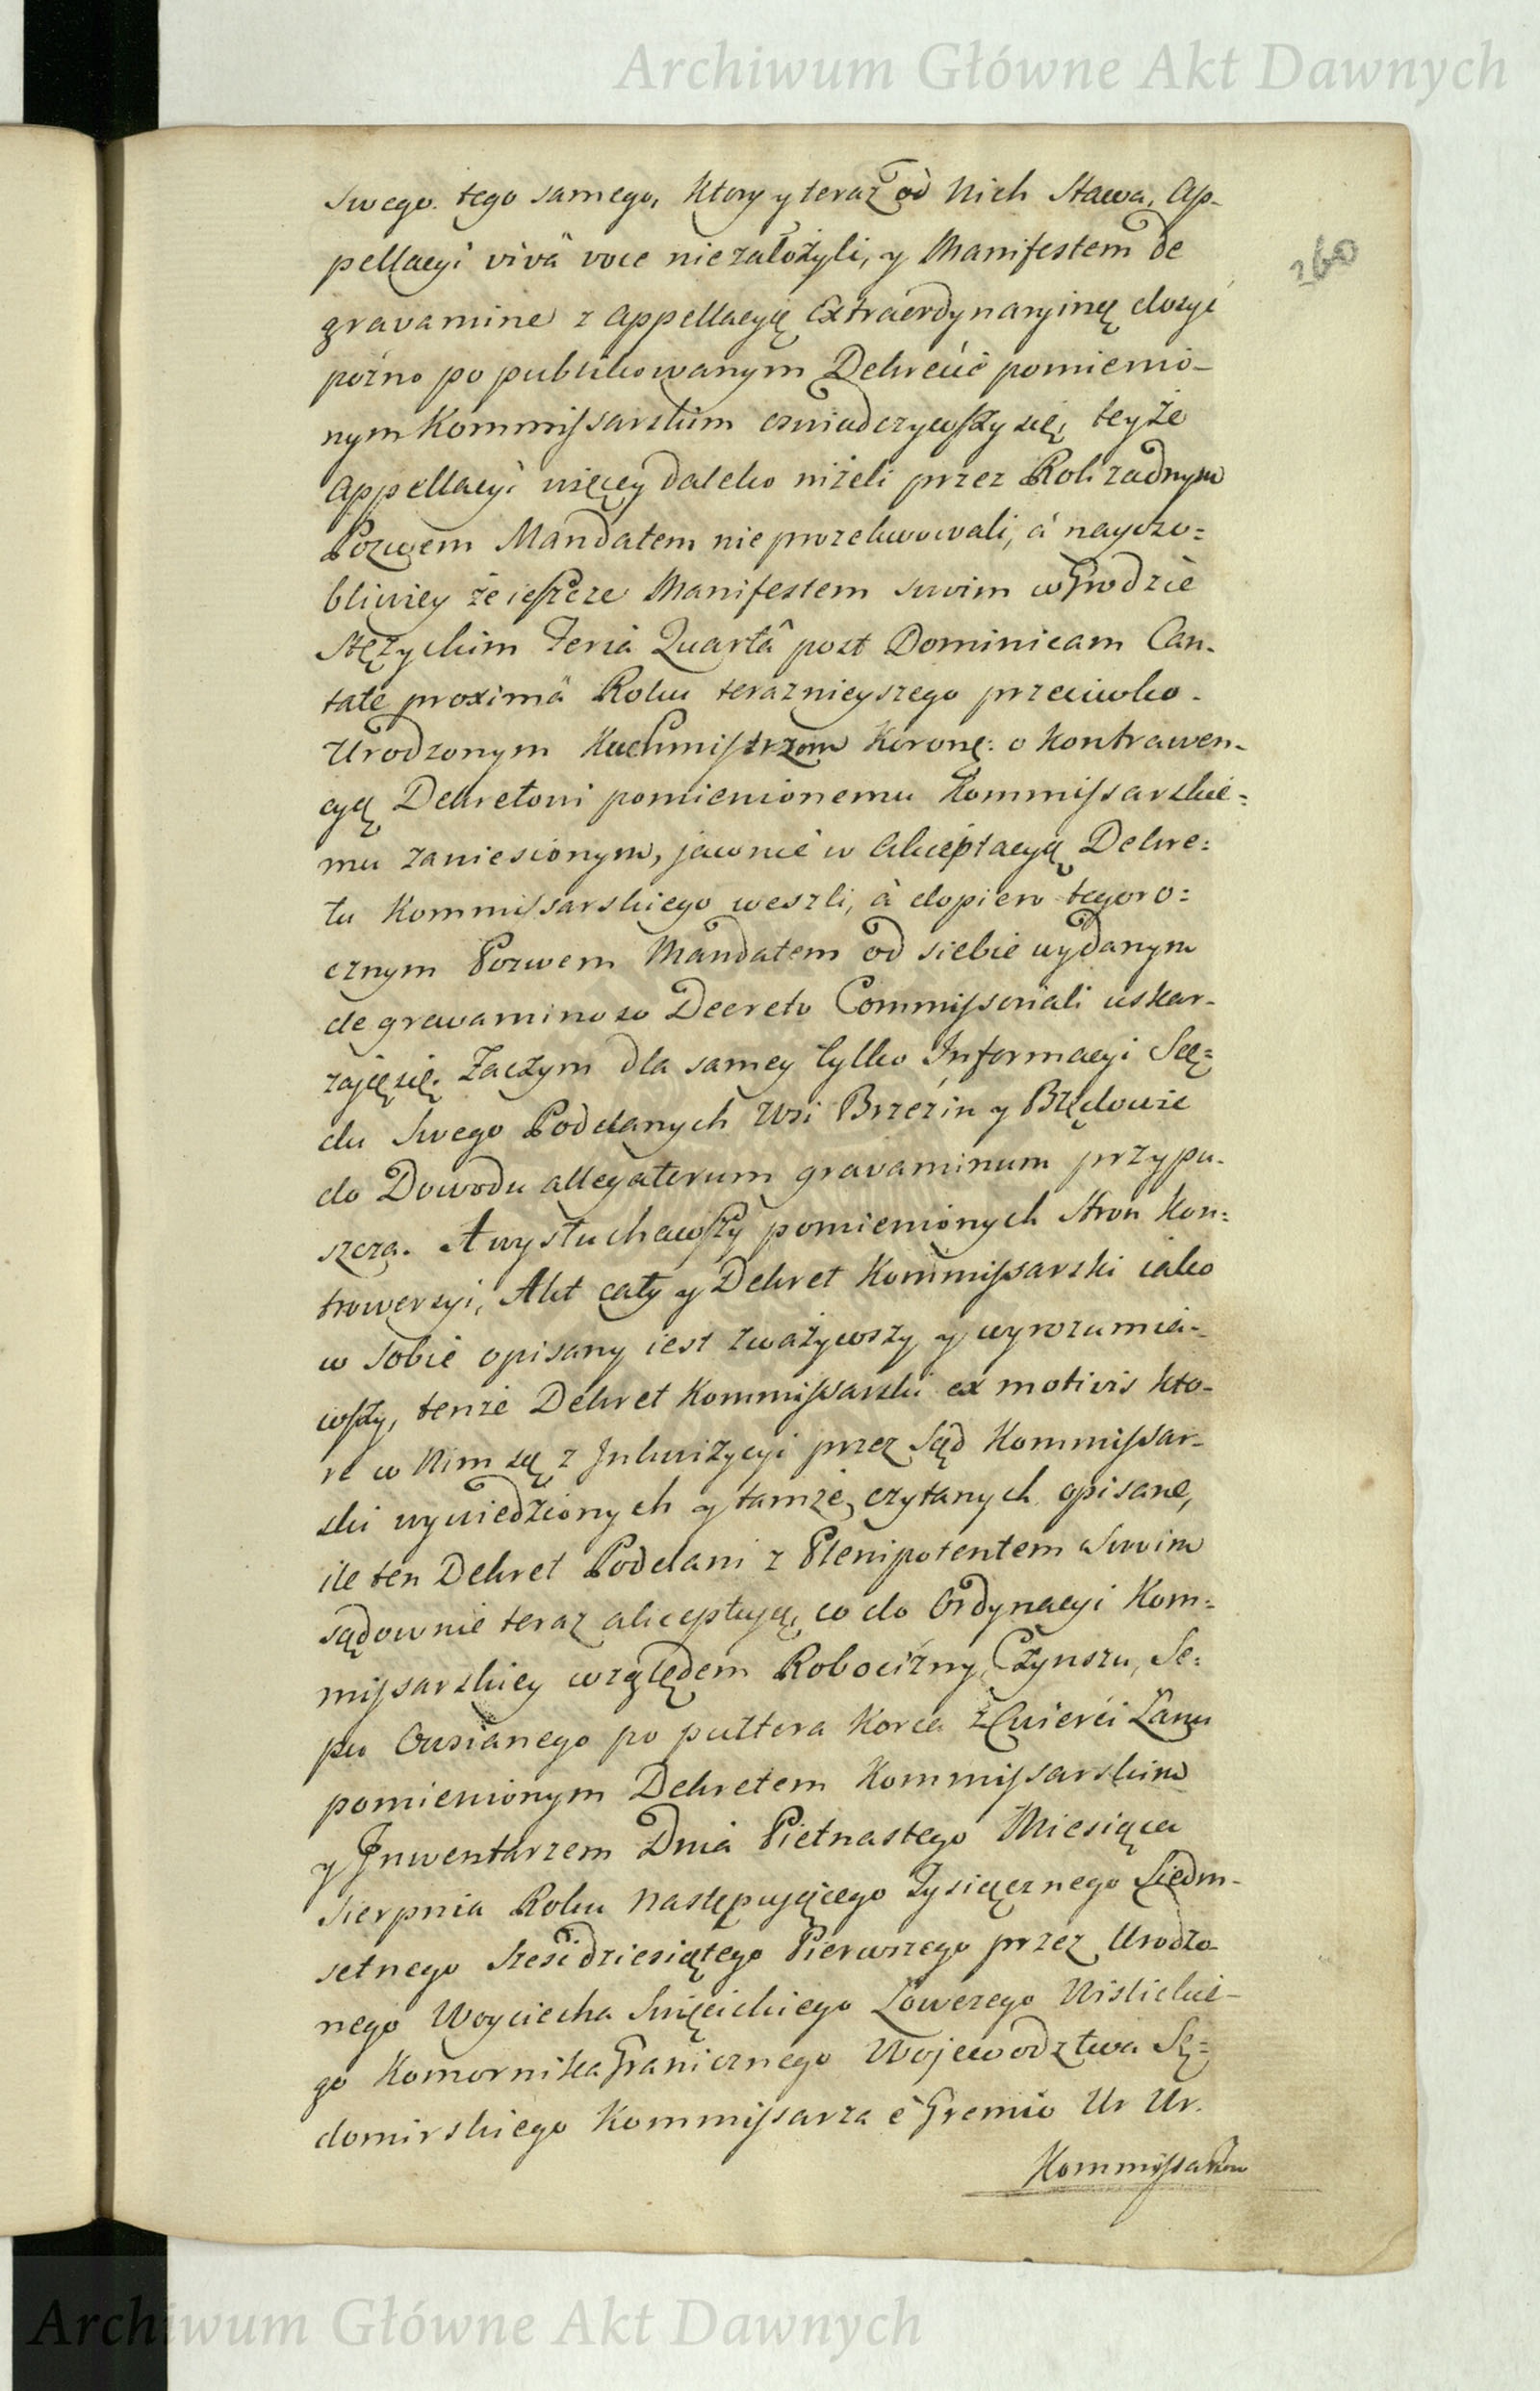 Archiwum Główne Akt Dawnych
260
swego tego samego, ktory y teraz od Nich stawa, Ap-
pellacyi vivâ voce nie założyli, y Manifestem de
gravamine z Appellacyą Extraordynaryiną dosyć
pozno po publikowanym Dekrecie pomienio-
nym Kommissarskim oswiadczywszy się, teyże
Appellacyi więcey daleko niżeli przez Rok żadnym
Pozwem Mandatem nie prosekwowali, à nayoso=
bliwiey że ieszcze Manifestem swoim w Grodzie
Stężyckim Feria Quartâ post Dominicam Can-
tate proximâ Roku teraznieyszego przeciwko
Urodzonym Kuchmistrzom Koronę: o kontrawen-
cyą Dekretowi pomienionemu Kommissarskie=
mu zaniesionym, jawnie w Akceptacyą Dekre=
tu Kommissarskiego weszli, à dopiero tegoro=
cznym Pozwem Mandatem od siebie wydanym
de gravaminoso Decreto Commissoriali uskar-
zają się. Zaczym dla samey tylko Informacyi Są=
du Swego Poddanych Wsi Brzezin y Blędowic
do Dowodu allegatorum gravaminum przypu-
szcza. A wysłuchawszy pomienionych Stron Kon=
trowersyi, Akt cały y Dekret Kommissarski iako
w sobie opisany iest zważywszy y wyrozumia-
wszy, tenże Dekret Kommissarski ex motivis kto-
re w Nim są z Inkwizycyi przez Sąd Kommissar-
ski wywiedzionych y tamże czytanych opisane,
ile ten Dekret Poddani z Plenipotentem swoim
sądownie teraz akceptują, co do Ordynacyi Kom=
missarskiey względem Robocizny, Czynszu, Se=
pu Owsianego po pułtora Korca z Cwierci Łanu
pomienionym Dekretem Kommissarskim
y Inwentarzem Dnia Pietnastego Miesiąca
Sierpnia Roku następującego Tysiącznego Siedm-
setnego Szesćdziesiątego Pierwszego przez Urodzo-
nego Woyciecha Swięcickiego Łowczego Wislickie-
go Komornika Granicznego Wojewodztwa Sę=
domirskiego Kommissarza è Gremio Ur Ur.
Kommissarzow
Archiwum Główne Akt Dawnych